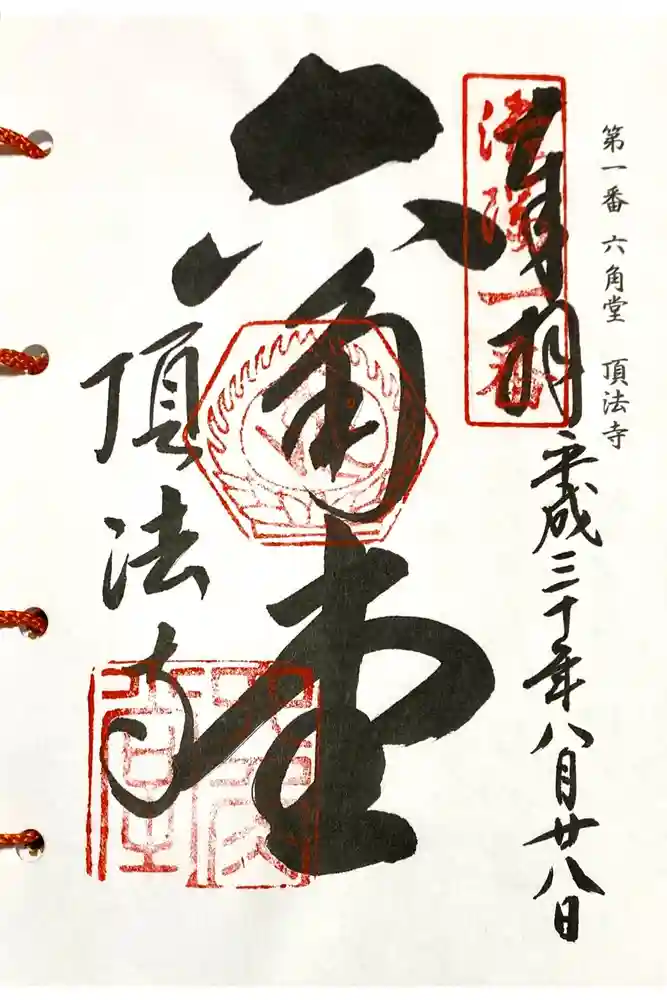 第一番 六角堂 頂法寺
奉拝
洛陽一番
平成三十年八月廿八日
六角堂
頂法寺